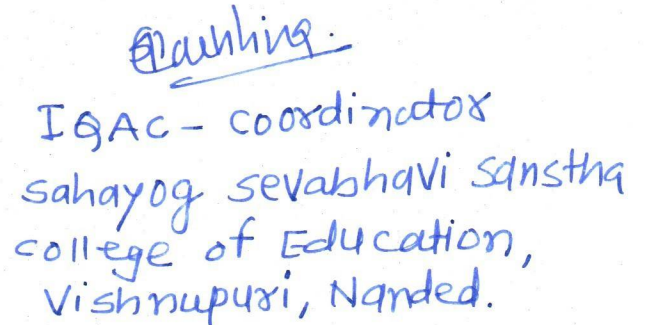 IQAC - Coordinator
sahayog sevabhavi sanstha
college of Education,
Vishnupuri, Nanded.